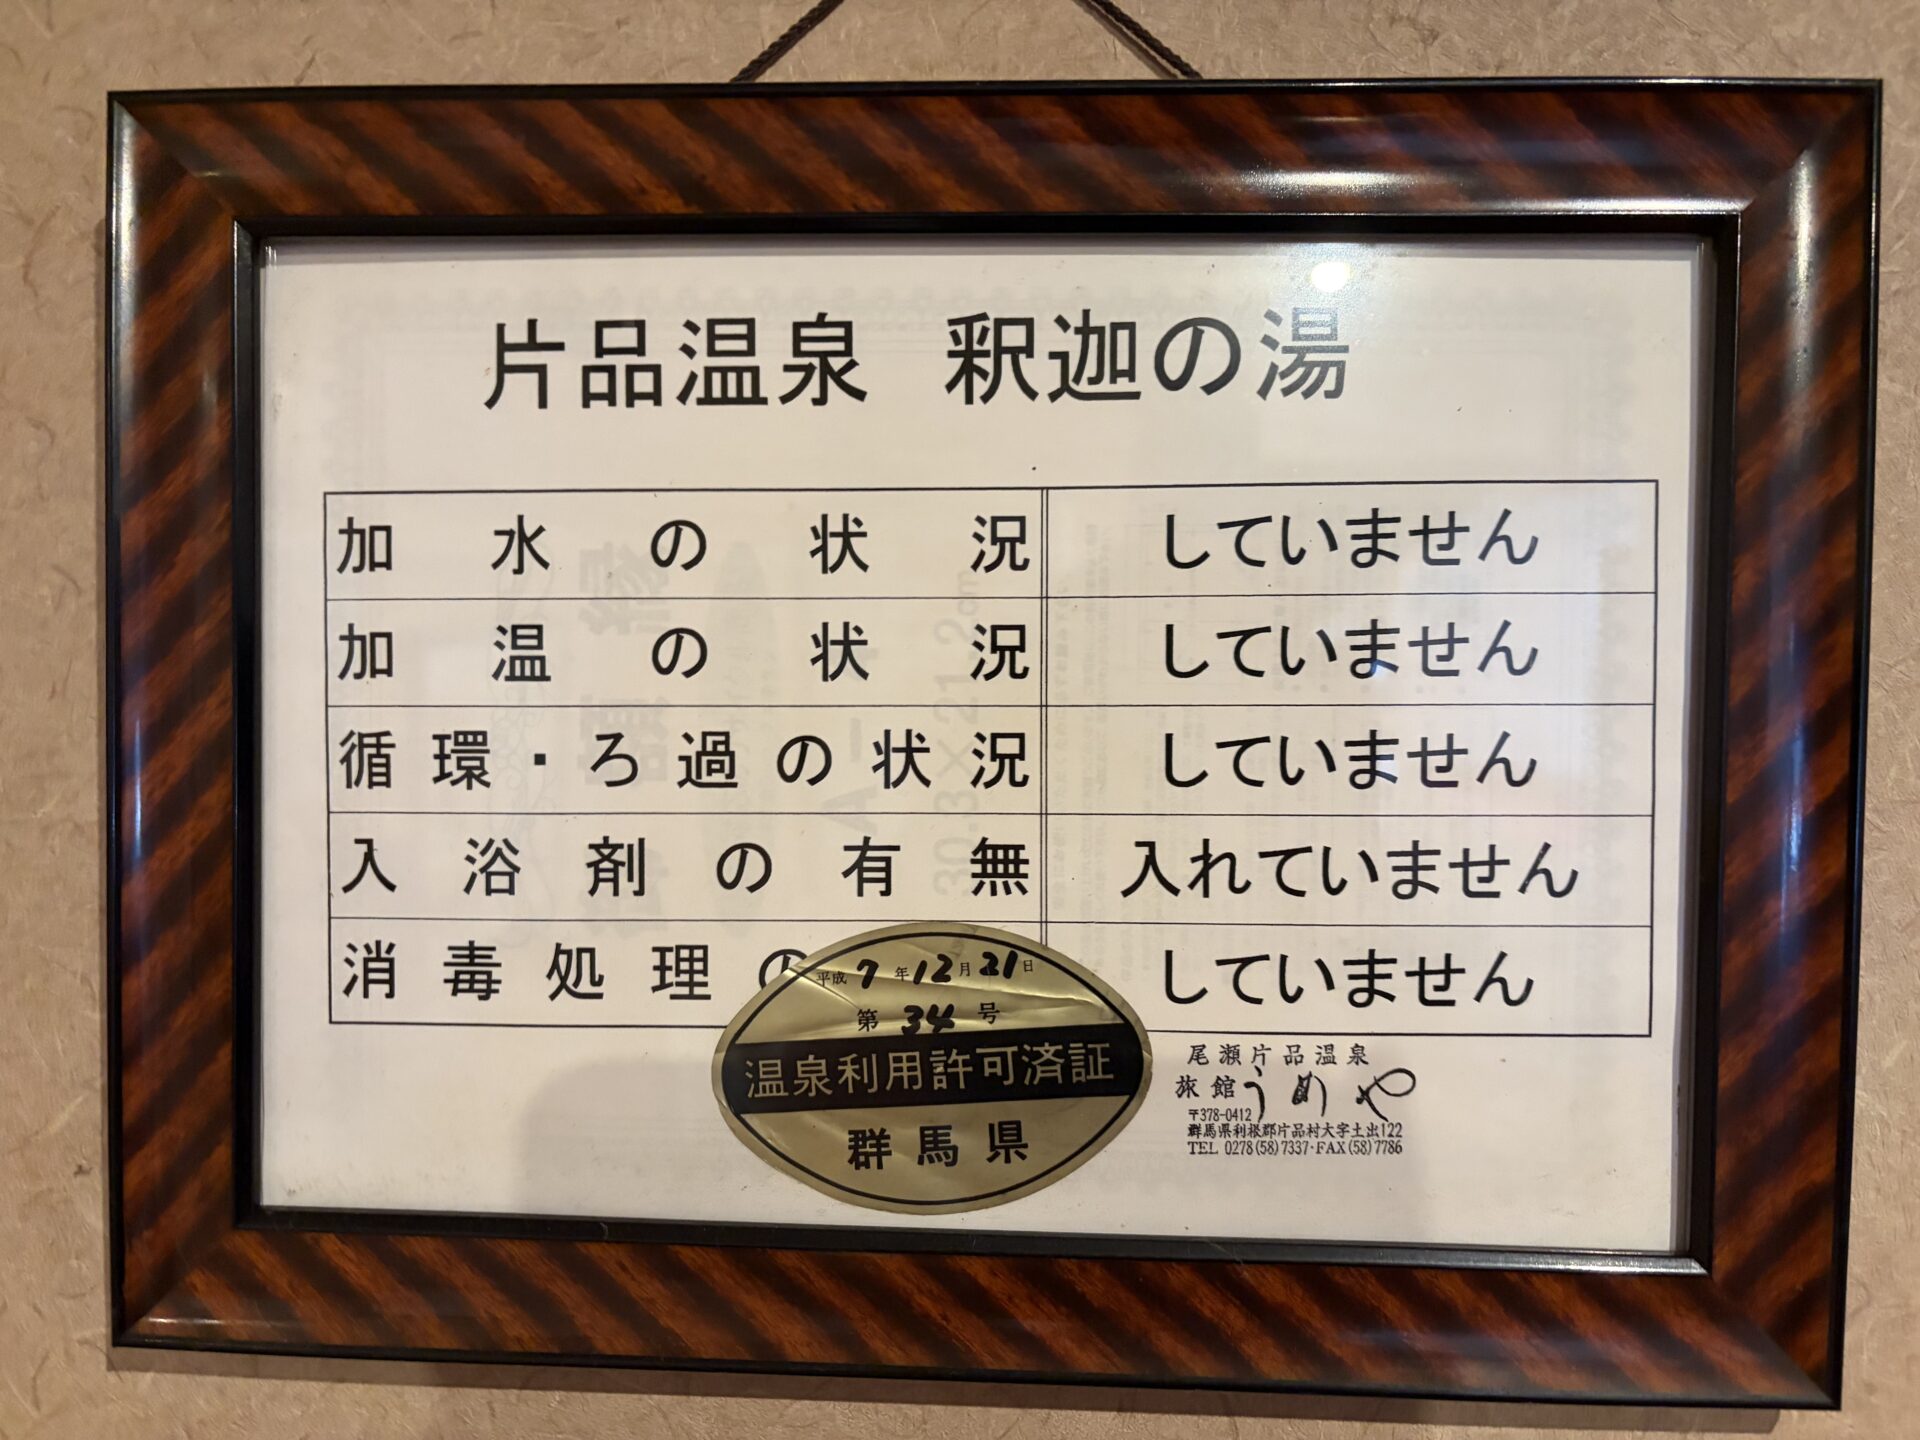 片品温泉 釈迦の湯
加水の状況 していません
加温の状況 していません
循環・ろ過の状況 していません
入浴剤の有無 入れていません
消毒処理の していません
平成7年12月21日
第34号
温泉利用許可済証
群馬県
尾瀬片品温泉
旅館うめや
〒378-0412
群馬県利根郡片品村大字土出122
TEL 0278(58)7337・FAX(58)7786